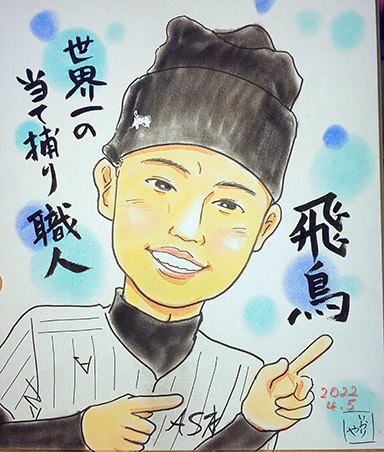 世界一の
当て捕り職人
飛鳥
2022
4.5